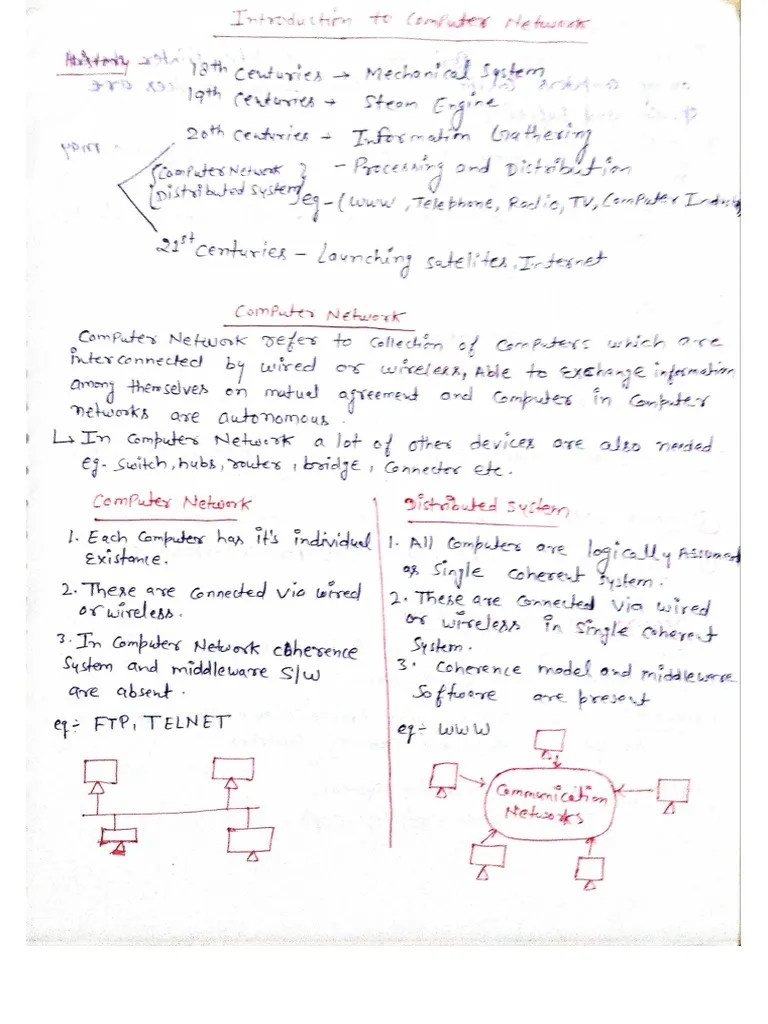 Introduction to Computer Network
History
18th Centuries → Mechanical System
19th Centuries → Steam Engine
20th Centuries → Information Gathering
- Processing and Distribution
{Computer Network
Distributed System}
eg - (WWW, Telephone, Radio, TV, Computer
21st Centuries - Launching Satelites, Internet
Computer Network
Computer Network refer to collection of computers which are
interconnected by wired or wireless, Able to exchange information
among themselves on mutual agreement and Computer in Computer
networks are autonomous.
↳ In Computer Network a lot of other devices are also needed
eg- Switch, hubs, router, bridge, Connector etc.
Computer Network
1. Each Computer has it's individual
Existance.
2. These are Connected via wired
or wireless.
3. In Computer Network coherence
System and middleware S/W
are absent.
eg:- FTP, TELNET
Distributed System
1. All Computer are logically Assumed
as Single Coherent System.
2. These are Connected via wired
or wireless in Single Coherent
System.
3. Coherence model and middleware
Software are present
eg:- WWW
Communication
Networks